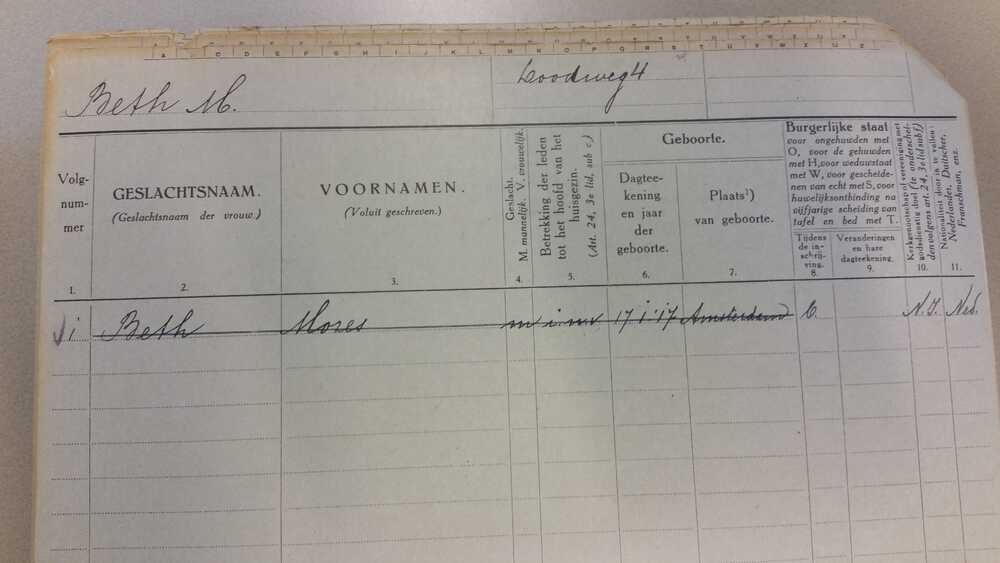 A C D E F G H I J K L M N O P Q R S T U V W X Y Z
Beth M.
Loodweg 4
Volg-
num-
mer
1.
GESLACHTSNAAM.
(Geslachtsnaam der vrouw.)
2.
VOORNAMEN.
(Voluit geschreven.)
3.
Geslacht.
M. mannelijk. V. vrouwelijk.
4.
Betrekking der leden
tot het hoofd van het
huisgezin.
(Art. 24, 3e lid, sub c.)
5.
Geboorte.
Dagtee-
kening
en jaar
der
geboorte.
6.
Plaats¹)
van geboorte.
7.
Burgerlijke staat
voor ongehuwden met
O, voor de gehuwden
met H, voor weduwstaat
met W, voor gescheide-
nen van echt met S, voor
huwelijksontbinding na
vijfjarige scheiding van
tafel en bed met T.
Tijdens
de in-
schrij-
ving.
8.
Veranderingen
en hare
dagteekening.
9.
Kerkgenootschap of vereeniging met
godsdienstig doel (te onderschei-
den volgens art. 24, 3e lid sub f.)
10.
Nationaliteit door in te vullen:
Nederlander, Duitscher,
Franschman, enz.
11.
1 Beth Mozes m 17 1 '17 Amsterdam N.I. Ned.